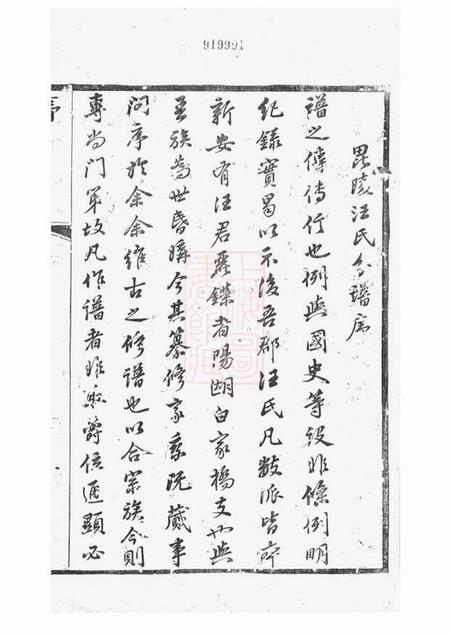 919991
毘陵汪氏合譜序
譜之傳傳行也例與國史等設非條例明
紀錄實曷以示後吾郡汪氏凡數派皆
新安有汪君鑠者陽湖白家橋支也與
吾族為世婚媾今其纂修家乘既蕆事
問序於余余維古之修譜也以合宗族今則
專尚門第故凡作譜者非輿爵位通顯必
序